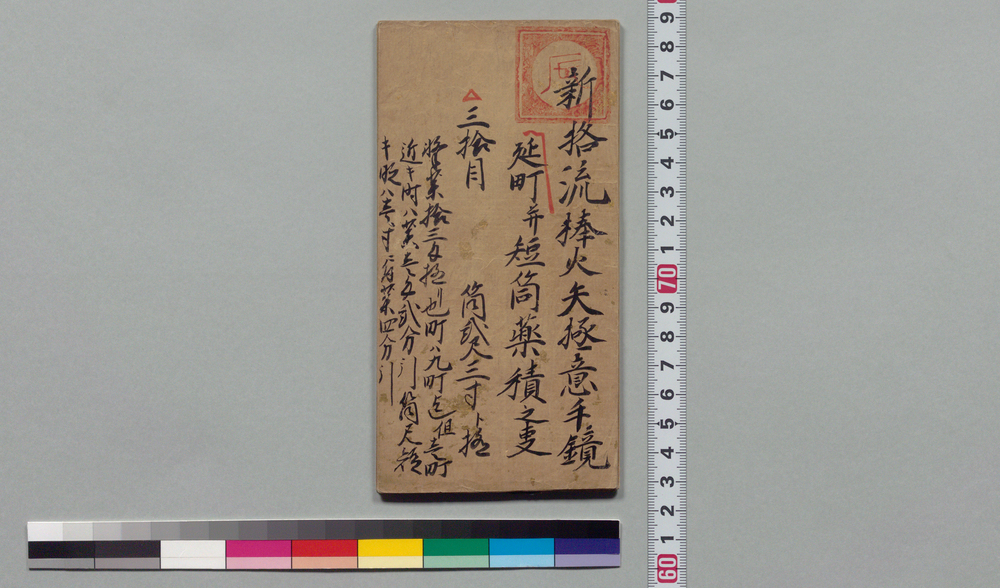 新格流棒火矢極意手鏡
延町并短筒薬積之叓
三拾目 筒貮尺三寸ト極
薬拾三匁極リ也町ハ九町迄但壱町
近キ時ハ薬壱匁貮分引筒尺短
キ時ハ壱寸ニ付薬四分引
9
8
7
6
5
4
3
2
1
70
9
8
7
6
5
4
3
2
1
60